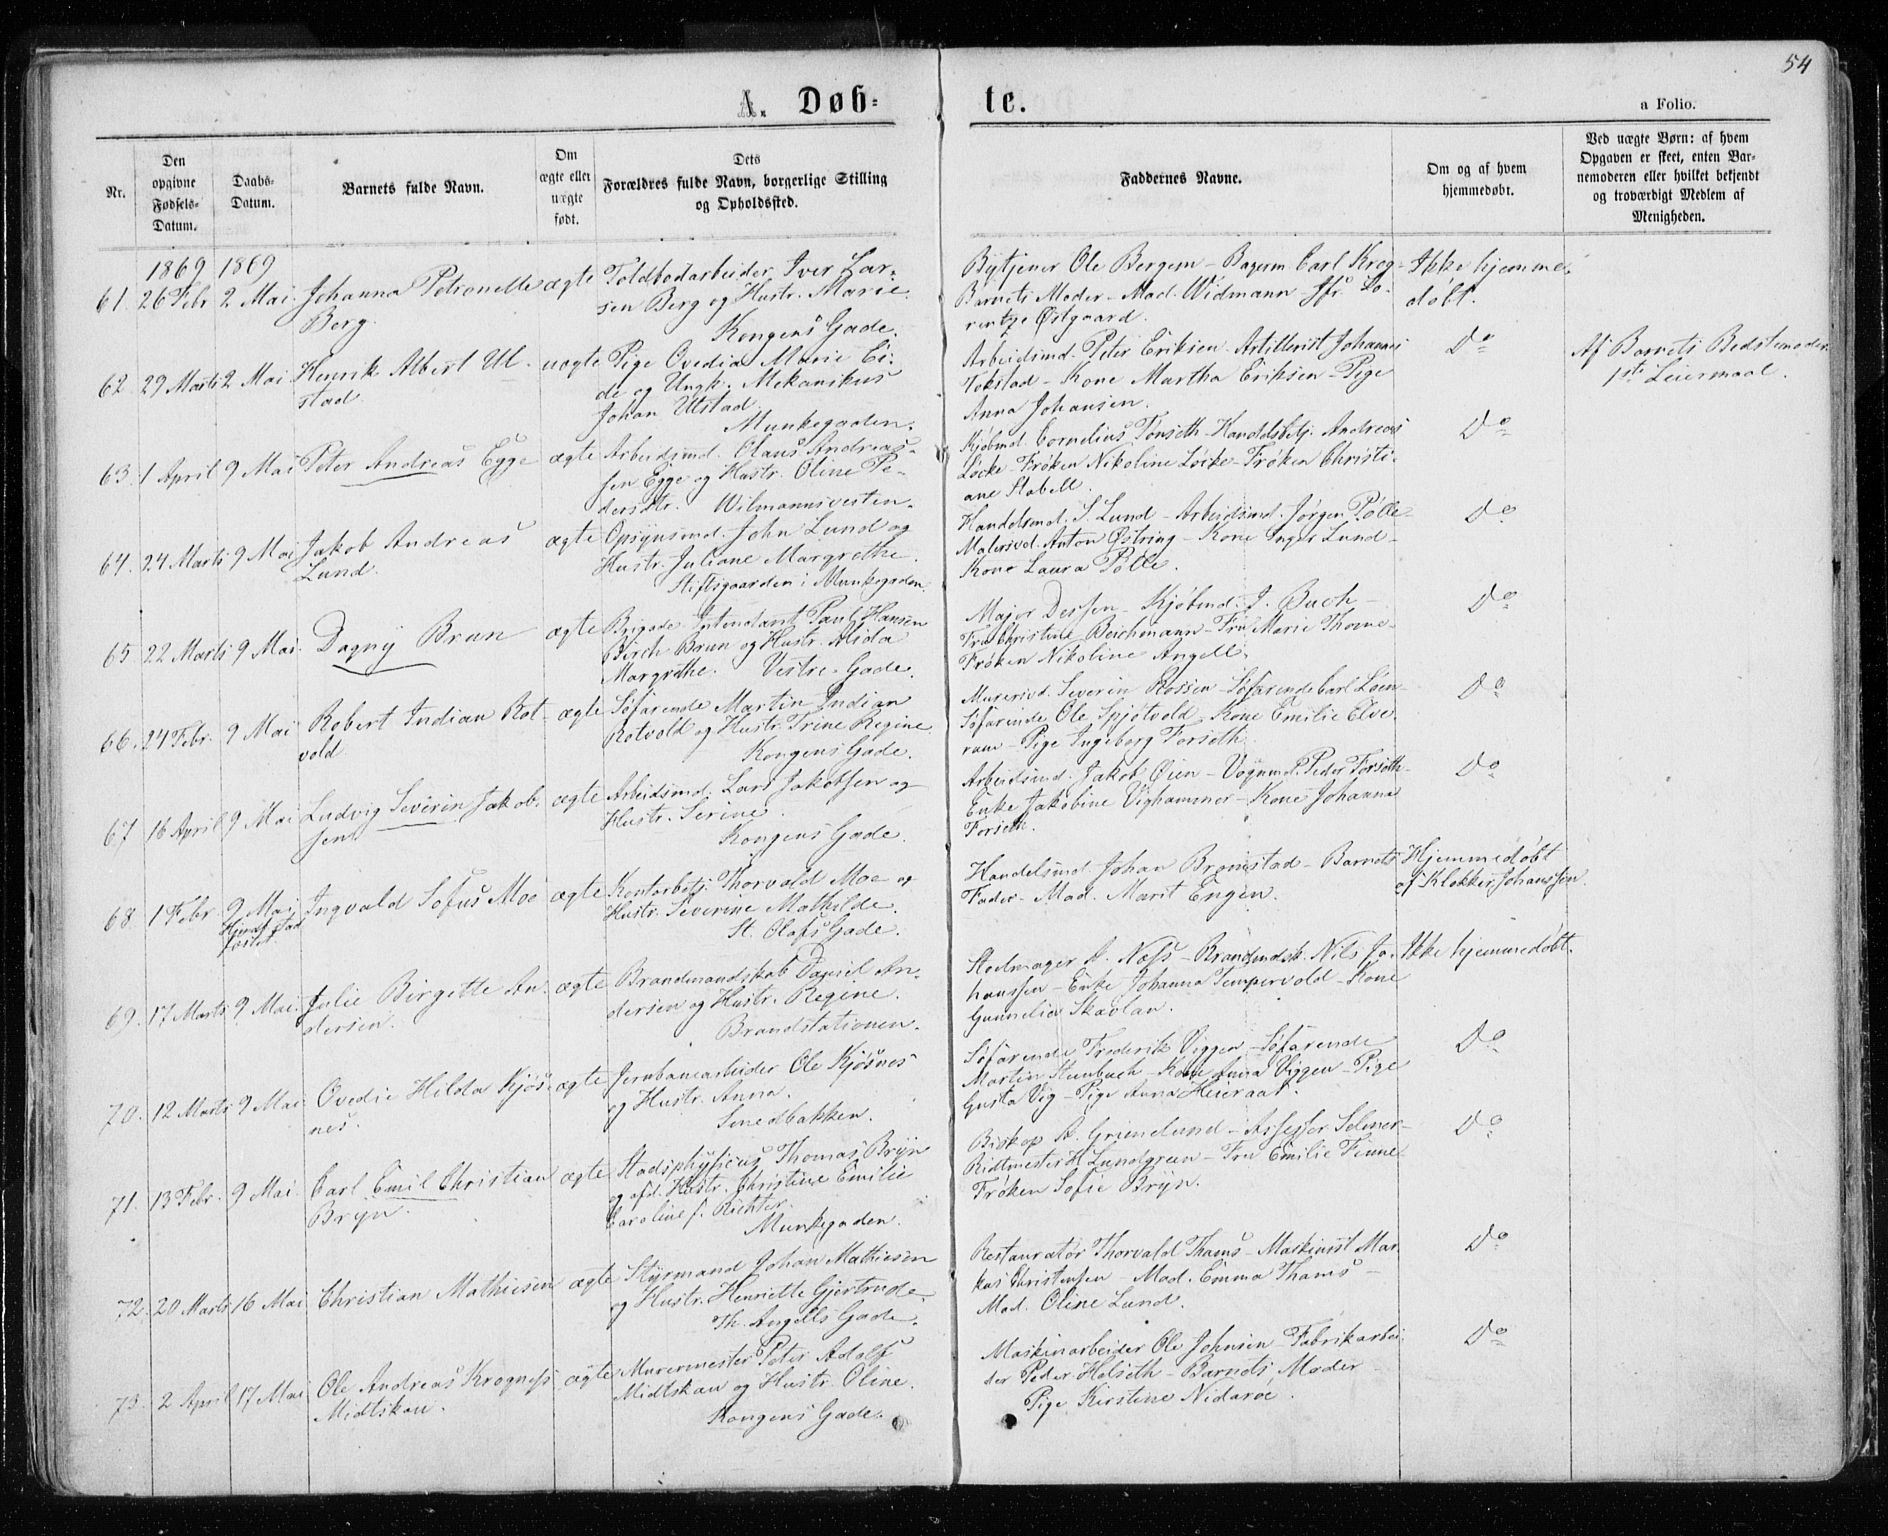 54
A. Døb-
te.
a Folio.
Nr.
Den opgivne Fødsels-Datum.
Daabs-Datum.
Barnets fulde Navn.
Om ægte eller uægte født.
Dets Forældres fulde Navn, borgerlige Stilling og Opholdssted.
Faddernes Navne.
Om og af hvem hjemmedøbt.
Ved uægte Børn: af hvem Opgaven er skeet, enten Barnemoderen eller hvilket bekjendt og troværdigt Medlem af Menigheden.
1869 1869
61. 26 Febr 2 Mai. Johanna Petronelle ægte Toldbodarbeider Iver Lar-
Berg. sen Berg og Hustr. Marie.
Kongens Gade.
Bytjener Ole Bergem - Bagerm Carl Krog-
Barnets Moder - Mad. Widmann Jfr. Lo-
rentze Østgaard.
Ikke hjemme-
døbt.
62. 29 Marts 2 Mai Henrik Albert Ul- uægte Pige Ovedia Marie Ei-
stad. de og Ungk. Mekanikus
Johan Ulstad.
Munkegaden.
Arbeidsmd. Peter Eriksen - Artillerist Johannes
Tokstad - Kone Martha Eriksen - Pige
Anna Johansen.
Do
Af Barnets Bedstemoder.
1ste Leiermaal.
63. 1 April 9 Mai Peter Andreas Egge ægte Arbeidsmd. Olaus Andreas-
sen Egge og Hustr. Oline Pe-
dersdtr. Wilmannsvesten.
Kjøbmd. Cornelius Tønseth - Handelsbetj. Andreas
Løcke - Frøken Nikoline Løcke - Frøken Christi-
ane Stabell.
Do
64. 24 Marts 9 Mai Jakob Andreas ægte Opsynsmd. John Lund og
Lund. Hustr. Juliane Margrethe.
Stiftsgaarden i Munkegaden.
Handelsmd. S. Lund - Arbeidsmd. Jørgen Pølle-
Malersvd. Anton Østring - Kone Inger Lund -
Kone Laura Pølle.
Do
65 22 Marts 9 Mai. Dagny Brun ægte Brigade Intendant Paul Hansen
Birch Brun og Hustr. Alida
Margrethe. Vestre Gade.
Major Dessen - Kjøbmd. J. Buch -
Fru Christine Beichmann - Fru Marie Thonne-
Frøken Nikoline Angell.
Do
66. 24 Febr. 9 Mai Robert Indian Rot- ægte Søfarende Martin Indian
vold. Rotvold og Hustr. Trine Regine
Kongens Gade.
Murersvd. Severin Rossen - Søfarende Carl Løen-
Søfarende Ole Spjøtvold, Kone Emilie Elve-
ram - Pige Ingeborg Forseth.
Do
67 16 April 9 Mai Ludvig Severin Jakob- ægte Arbeidsmd. Lars Jakobsen og
sen. Hustr. Serine.
Kongens Gade.
Arbeidsmd. Jakob Øien - Vognmd. Peder Forseth-
Enke Jakobine Vighammer - Kone Johanna
Forseth.
Do
68. 1 Febr 9 Mai Ingvald Sofus Moe ægte Kontorbetj. Thorvald Moe og
Hustr. Severine Mathilde.
St. Olafs Gade.
Handelsmd. Johan Bromstad - Barnets
Fader - Mad. Marit Engen.
Hjemmedøbt
af Klokker Johanssen.
69. 17 Marts 9 Mai. Julie Birgitte An- ægte Brandmandskab Daniel An-
dersen. dersen og Hustr. Regine.
Brandstationen.
Stolmager A. Næss - Brandmdsk. Nils Jo-
hanssen - Enke Johanna Tempervold - Kone
Gunnelia Skavlan.
Ikke hjemmedøbt.
70. 12 Marts 9 Mai Ovedie Hilda Kjøs- ægte Jernbanearbeider Ole Kjøsnes
nes. og Hustr. Anna.
Smedbakken.
Søfarende Frederik Viggen - Søfarende
Martin Stenbuch - Kone Anna Viggen - Pige
Gusta Vig - Pige Anna Heieraas.
Do
71. 13 Febr. 9 Mai. Carl Emil Christian ægte Stadsphysicus Thomas Bryn
Bryn. og afd. Hustr. Christine Emilie
Caroline f. Richter.
Munkegaden.
Biskop A. Grimelund - Assessor Selmer-
Ridtmester H Lundgreen - Fru Emilie Finne
Frøken Sofie Bryn.
Do
72. 20 Marts 16 Mai Christian Mathiesen ægte Styrmand Johan Mathiesen
og Hustr. Henriette Gjertrude.
Th. Angells Gade.
Restauratør Thorvald Thams - Maskinist Mar-
kus Christensen - Mad. Emma Thams -
Mad. Oline Lund.
Do
73. 2 April 17 Mai Ole Andreas Krogness ægte Murermester Peter Adolf
Midtskau. Midtskau og Hustr. Oline.
Kongens Gade.
Maskinarbeider Ole Johnsen - Fabrikarbei-
der Peder Holseth - Barnets Moder -
Pige Kirstine Nidaroe.
Do